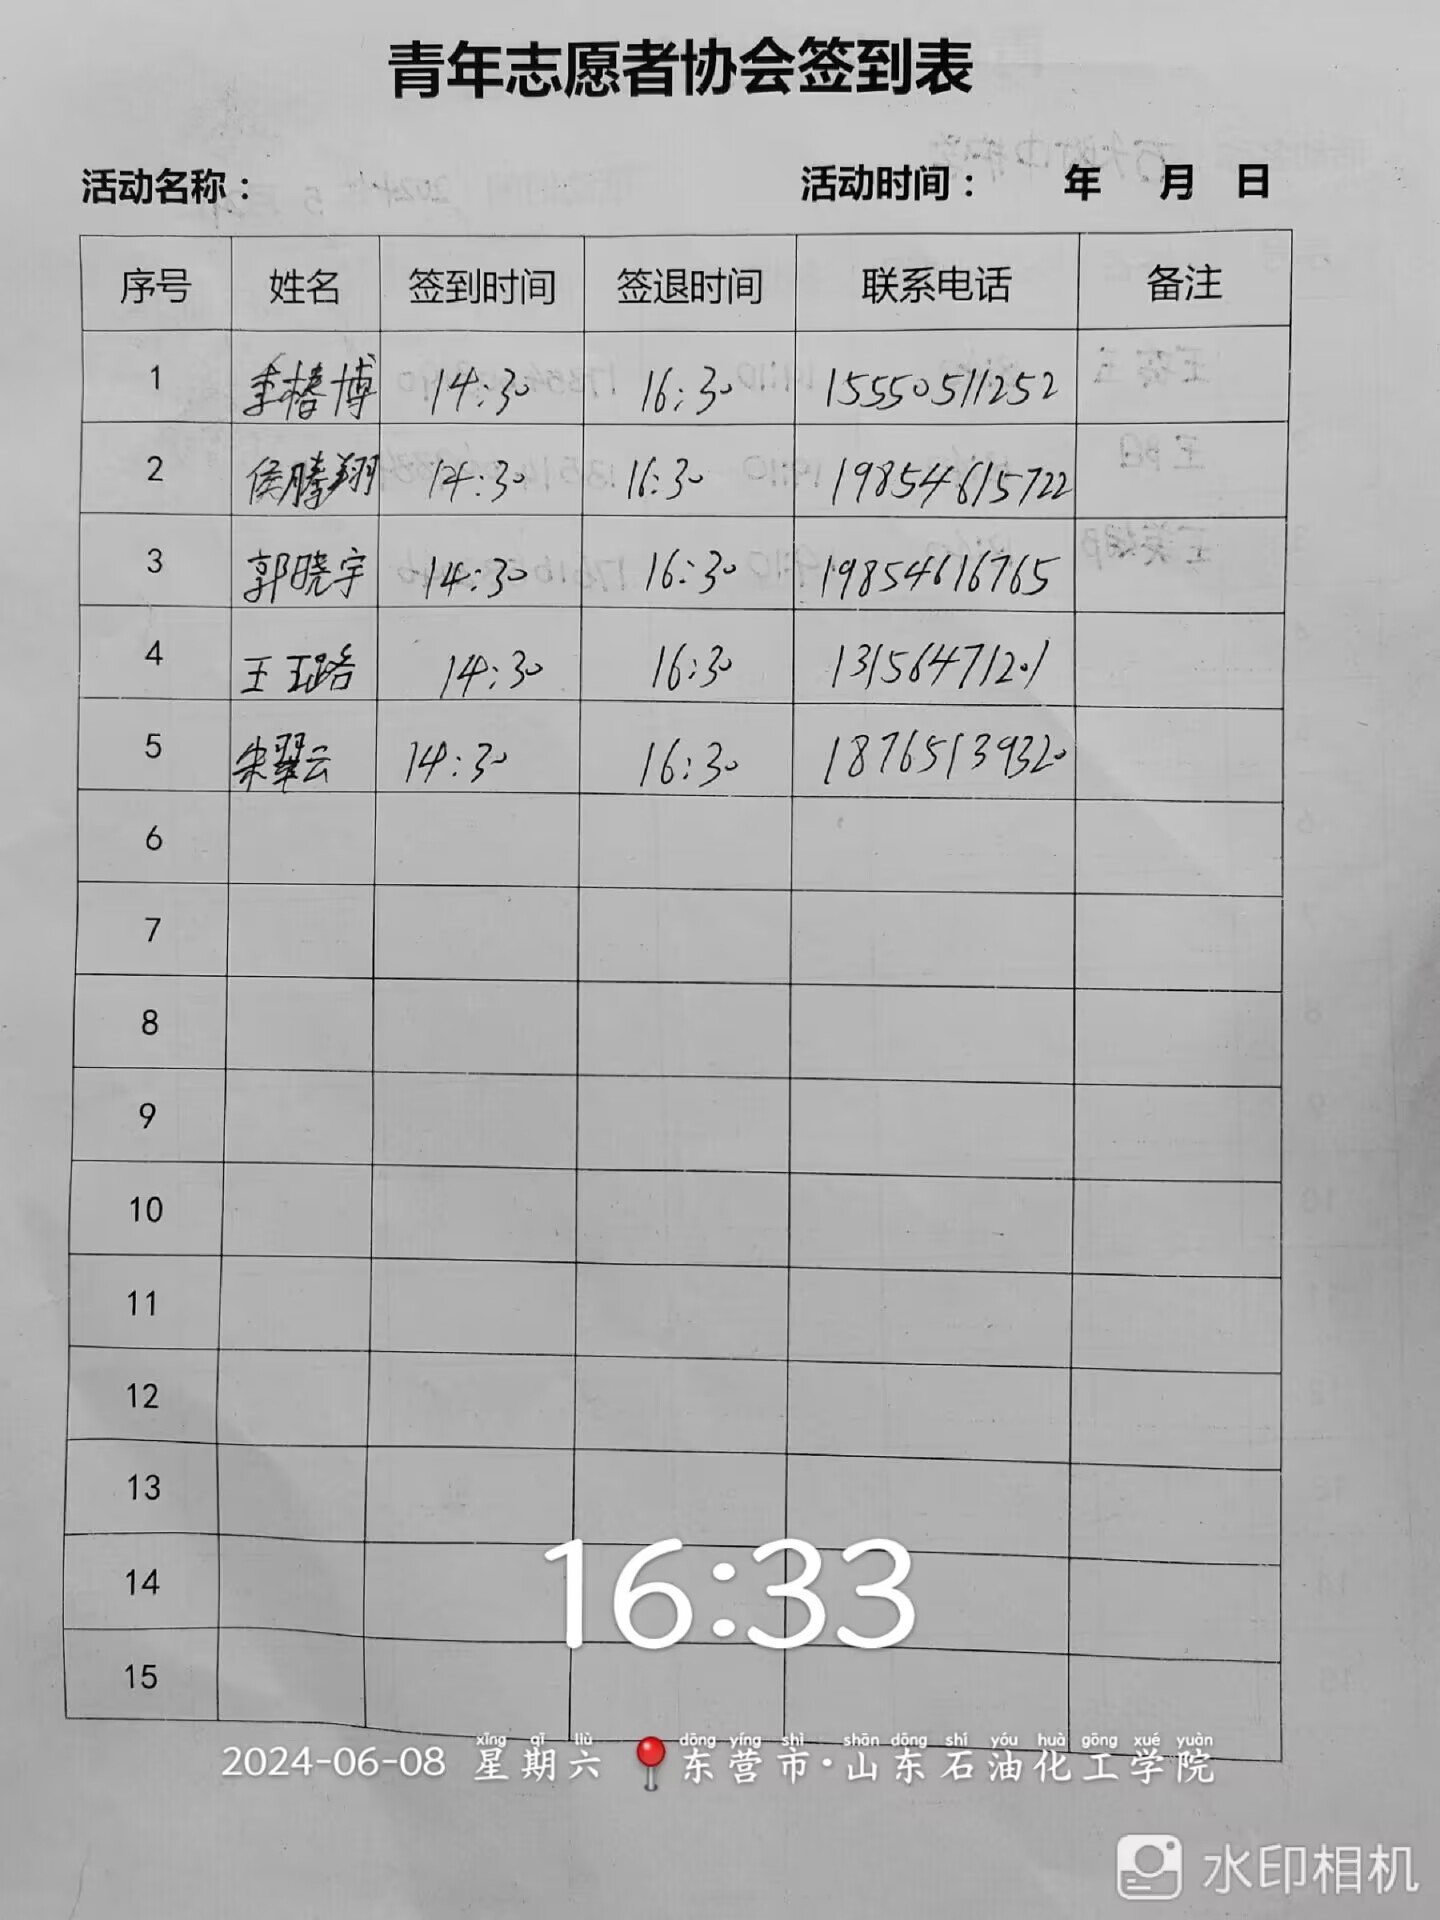 青年志愿者协会签到表
活动名称： 活动时间： 年 月 日
序号 姓名 签到时间 签退时间 联系电话 备注
1 李椿博 14:30 16:30 15550511252
2 侯腾翔 14:30 16:30 19854615722
3 郭晓宇 14:30 16:30 19854616765
4 王玉璐 14:30 16:30 13156471201
5 朱翠云 14:30 16:30 18765139320
6
7
8
9
10
11
12
13
14
15
16:33
xīng qī liù dōng yíng shì shān dōng shí yóu huà gōng xué yuàn
2024-06-08 星期六 东营市·山东石油化工学院
水印相机